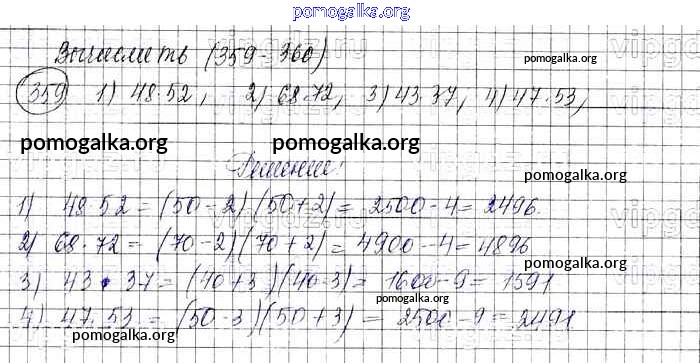 pomogalka.org
Вычислить (359-360)
pomogalka.org
359 1) 48·52, 2) 68·72, 3) 43·37, 4) 47·53,
pomogalka.org pomogalka.org
pomogalka.org
Решение:
1) 48·52 = (50-2)(50+2) = 2500-4 = 2496.
pomogalka.org
2) 68·72 = (70-2)(70+2) = 4900-4 = 4896
pomogalka.org
3) 43·37 = (40+3)(40-3) = 1600-9 = 1591
pomogalka.org
4) 47·53 = (50-3)(50+3) = 2500-9 = 2491
pomogalka.org
pomogalka.org